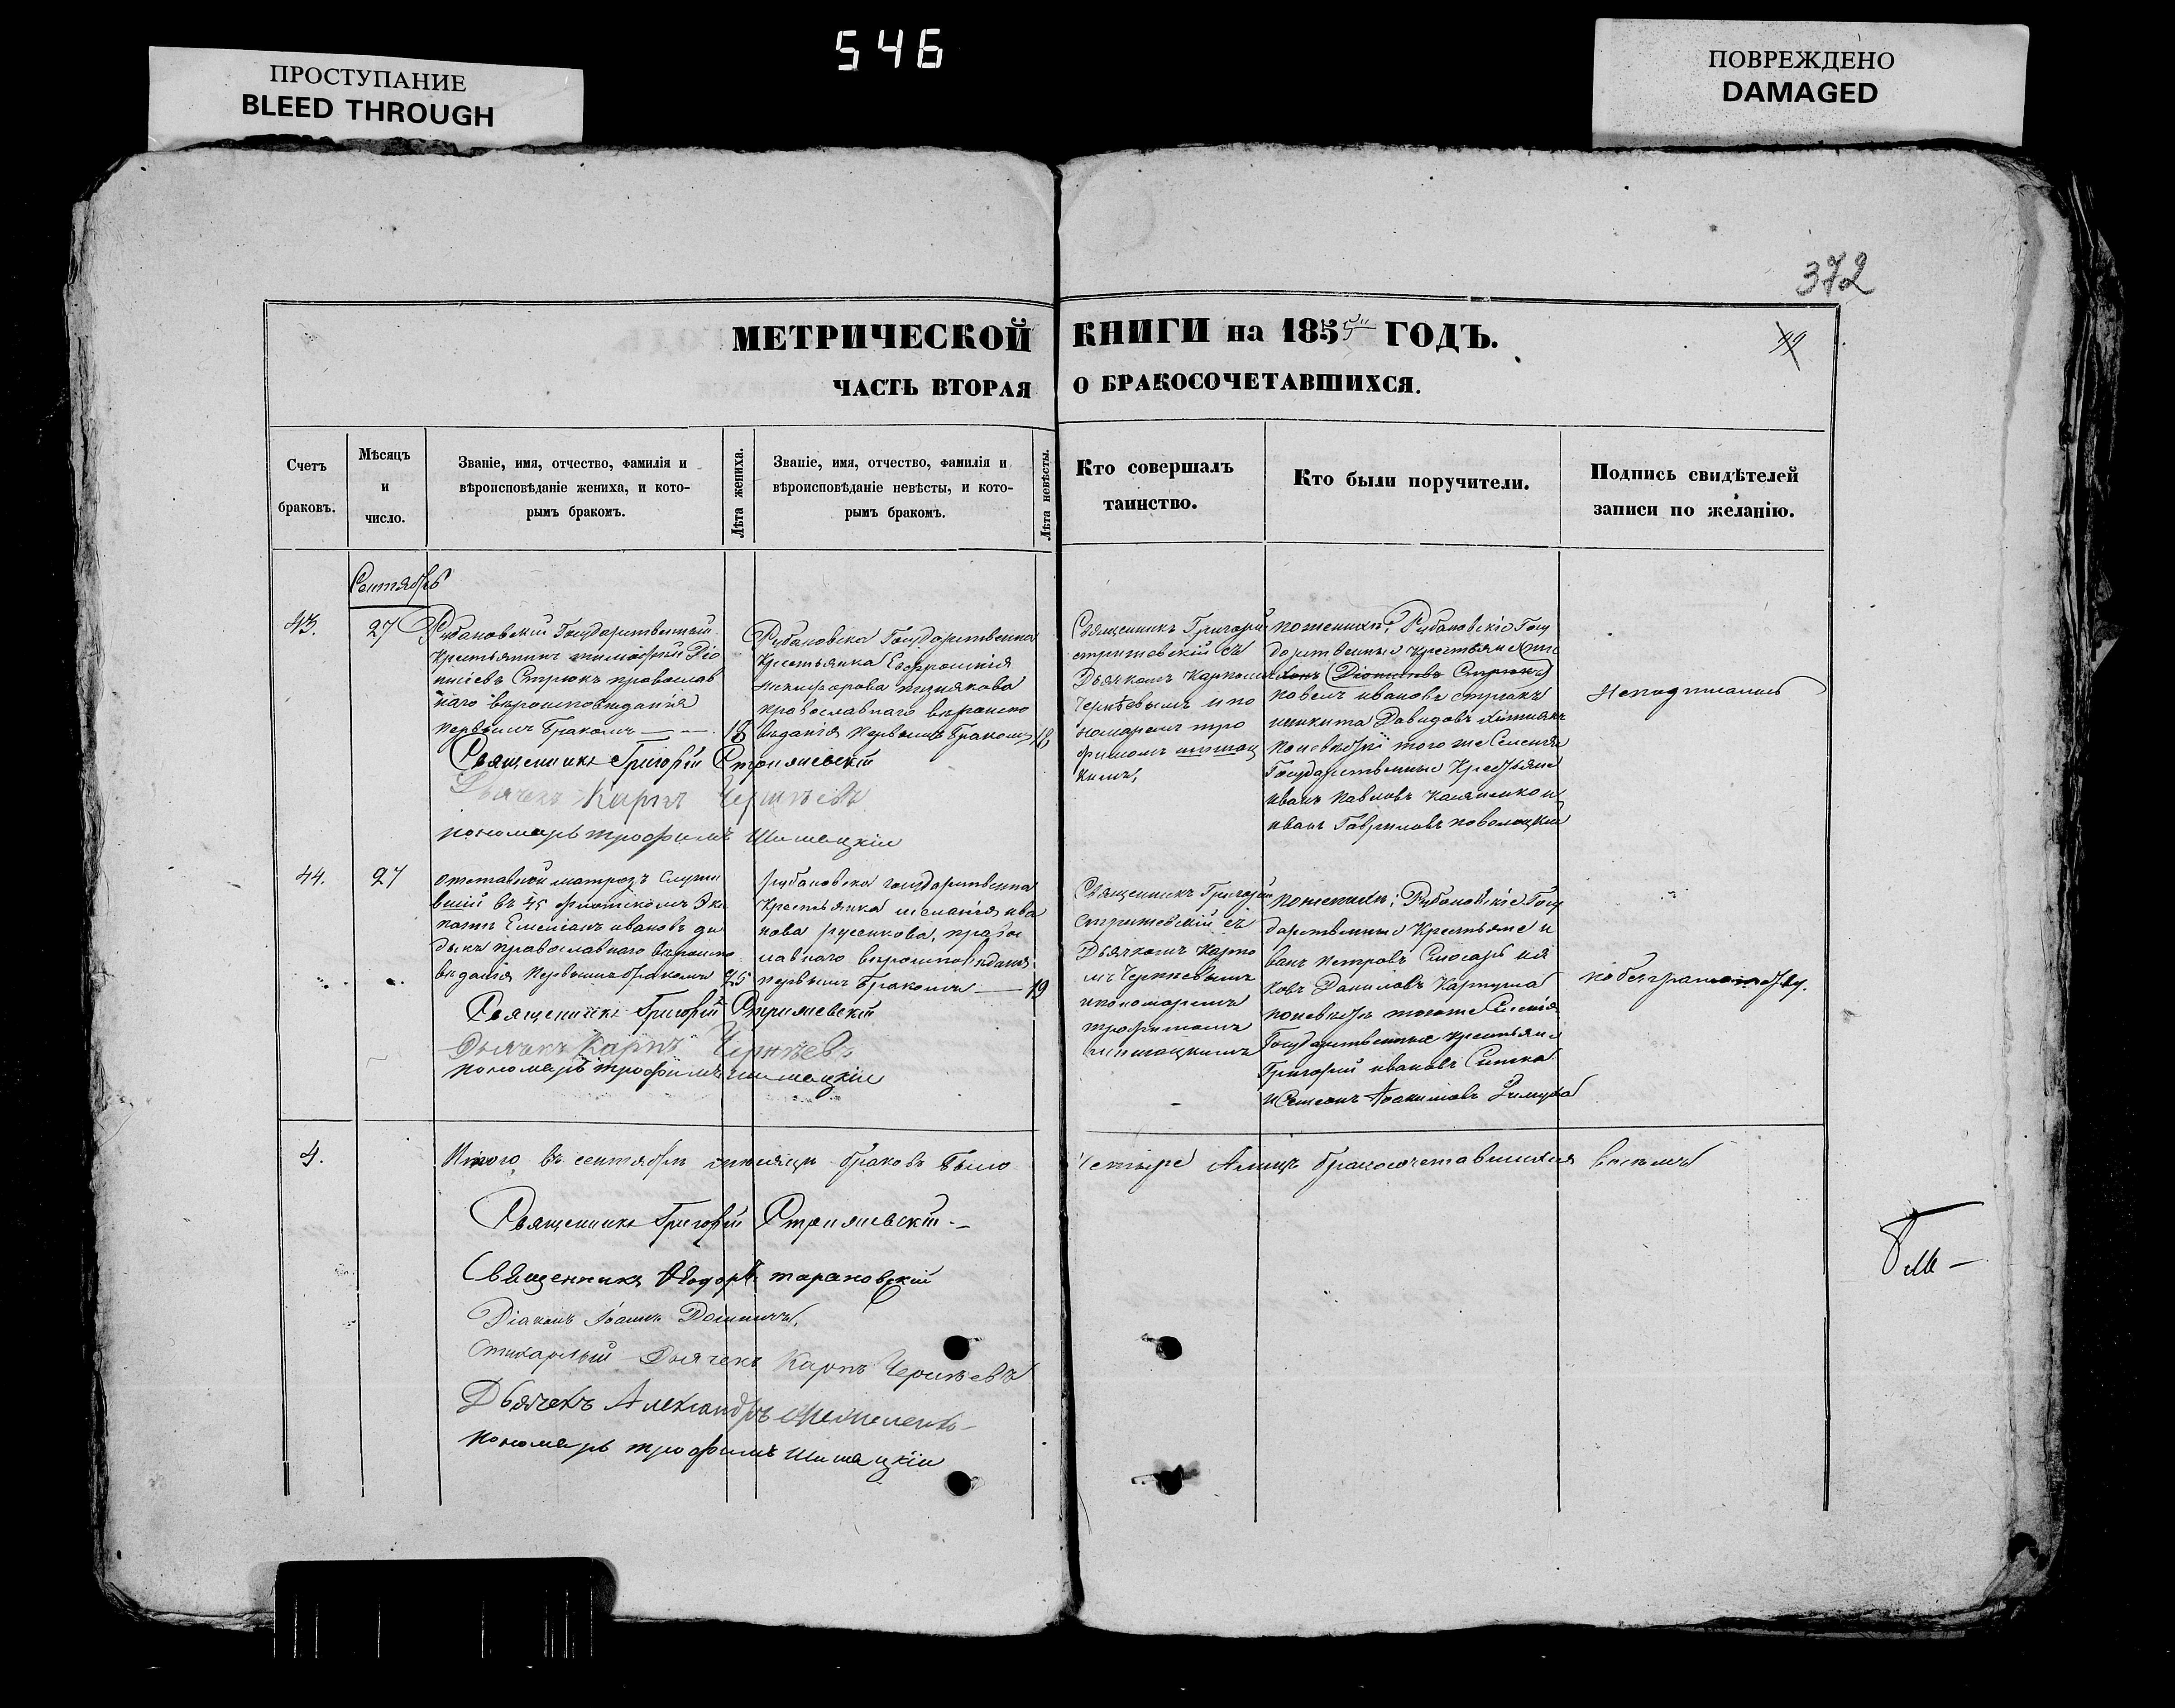 546
ПРОСТУПАНИЕ
BLEED THROUGH
ПОВРЕЖДЕНО
DAMAGED
372
МЕТРИЧЕСКОЙ КНИГИ на 1855 ГОДЪ.
ЧАСТЬ ВТОРАЯ О БРАКОСОЧЕТАВШИХСЯ.
Счетъ
браковъ.
Мѣсяцъ
и
число.
Званіе, имя, отчество, фамилія и
вѣроисповѣданіе жениха, и кото-
рымъ бракомъ.
Лѣта жениха.
Званіе, имя, отчество, фамилія и
вѣроисповѣданіе невѣсты, и кото-
рымъ бракомъ.
Лѣта невѣсты.
Кто совершалъ
таинство.
Кто были поручители.
Подпись свидѣтелей
записи по желанію.
Сентябрь
43.
27
Рубановскій Государственный
Крестьянинъ тимофей Діо
нисіевъ Стрюкъ православ
наго вѣроисповѣданія
первымъ бракомъ
18
Рубановска Государственна
Крестьянка Евфросинія
Никифорова
православнаго вѣроиспо
вѣданія первымъ бракомъ
18
Священникъ Григорій
стрижевскій съ
Дьячкомъ Карпомъ
Чернѣевымъ и по
номаремъ тро
фимомъ шишац
кимъ,
по женихѣ: Рубановскіе Госу
дарственные крестьяне
Діонисіевъ Стрюкъ
павелъ ивановъ стрюкъ
никита Давидовъ
по невѣстѣ того же Селенія
Государственные Крестьяне
иванъ Павловъ
иванъ Гавриловъ
Неподписались
Священникъ Григорій Стрижевскій
Дьячекъ Карпъ Чернѣевъ
пономарь трофимъ Шишацкій
44.
27
отставной матрозъ служи
вшій въ 45 флотскомъ Эки
пажѣ Емеліанъ ивановъ
православнаго вѣроиспо
вѣданія первымъ бракомъ
45
рубановска государственна
Крестьянка меланія ива
нова русенкова, правос
лавнаго вѣроисповѣданія
первымъ бракомъ
19
Священникъ Григорій
Стрижевскій съ
Дьячкомъ Карпо
мъ Чернѣевымъ
и пономаремъ
трофимомъ
шишацкимъ
по женихѣ: Рубановскіе Госу
дарственные Крестьяне и
ванъ петровъ Слюсарь ия
ковъ Даниловъ Картуша
по невѣстѣ тогоже Селенія
Государственные крестьяне
Григорій ивановъ
и Семеонъ Іоакимовъ
по безграмотству.
Священникъ Григорій Стрижевскій
Дьячекъ Карпъ Чернѣевъ
пономарь трофимъ шишацкій
4.
Итого въ сентябрѣ мѣсяцѣ браковъ было четыре А лицъ бракосочетавшихся восемь
Священникъ Григорій Стрижевскій
Священникъ Ѳеодоръ тарановскій
Діаконъ Іоаннъ
Стихарный Дьячекъ Карпъ Чернѣевъ
Дьячекъ Александръ
пономарь трофимъ Шишацкій